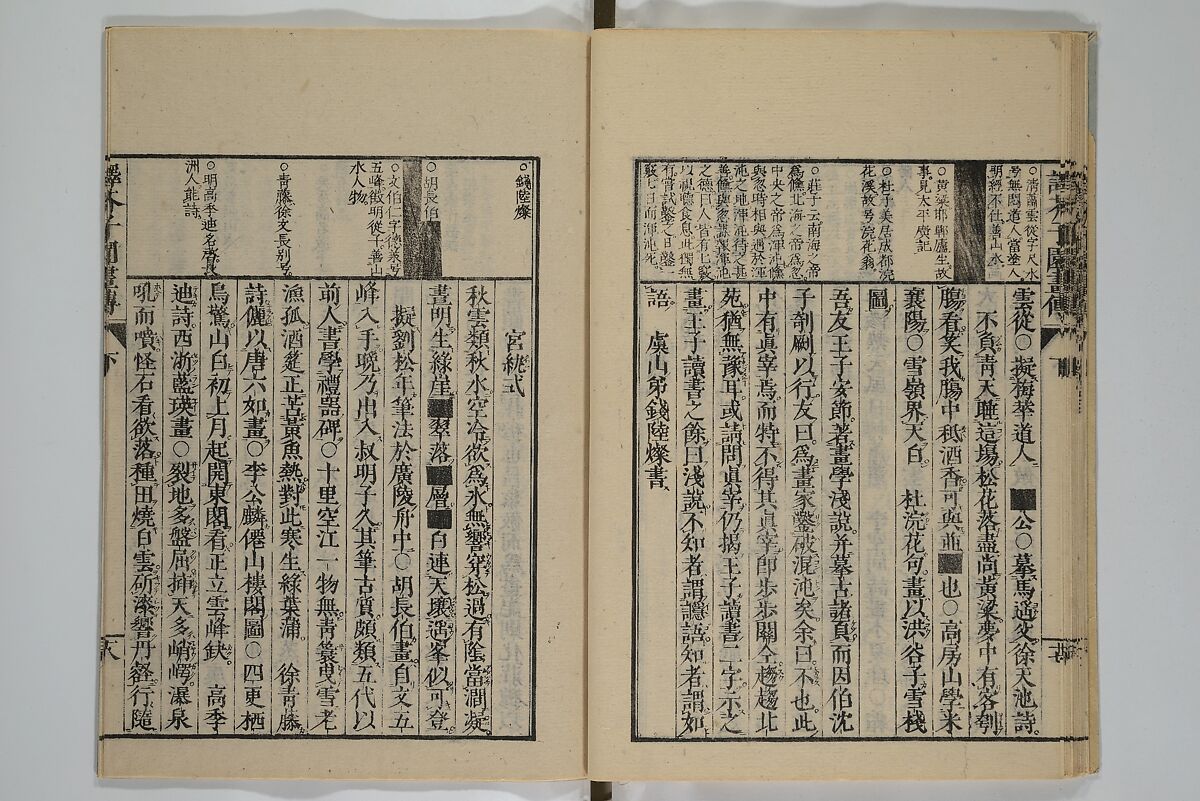 ○清蕭雲從字尺水
号無悶道人當塗人
明經不仕善山水
○黃粱邯鄲廬生故
事見太平廣記
○杜子美居成都浣
花溪故号浣花翁
○莊子云南海之帝
為儵北海之帝為忽
中央之帝為渾沌儵
與忽時相與遇於渾
沌之地渾沌待之甚
善儵與忽謀報渾沌
之德曰人皆有七竅
以視聽食息此獨無
有嘗試鑿之日鑿一
竅七日而渾沌死
雲從○擬梅華道人 公○摹馬遙父徐天池詩
大不負青天睡這場松花落盡尚黃粱夢中有客刳
腸看笑我腸中秪酒香可與並 也○高房山學米
襄陽○雪嶺界天白 杜浣花句畫以洪谷子雪棧
圖
吾友王子安節著畫學淺說并摹古諸頁而因伯沈
子剞劂以行友曰為畫家鑿破混沌矣余曰不也此
中有真宰焉而特不得其真宰即步步關仝趨趨北
苑猶無豫耳或請問真宰仍揭王子讀書二字示之
畫王子讀書之餘曰淺說不知者謂讔語知者謂如
語 虞山弟錢陸燦書
○錢陸燦
○胡長伯
○文伯仁字德承号
五峰徵明從子善山
水人物
○青藤徐文長別号
○明高季迪名啓長
洲人能詩
宮紈式
秋雲類秋水空冷欲為氷無響穿松過有陰當澗凝
晝明生綠崖 翠落 層 白連天壞遥峯似可登
擬劉松年筆法於廣陵舟中○胡長伯畫自文五
峰入手晚乃出入叔明子久其筆古質頗類五代以
前人書學禮器碑○十里空江一物無青簑曳雪老
漁孤酒筵正苦黃魚熱對此寒生綠葉蒲 徐青藤
詩儷以唐六如畫○李公麟僊山樓閣圖○四更栖
鳥驚山白初上月起開東閣看正立雲峰缺 高季
迪詩西浙藍瑛畫○裂地多盤屈挿天多峭崿瀑泉
吼而噴怪石看欲落種田燒白雲斫漆響丹壑行隨